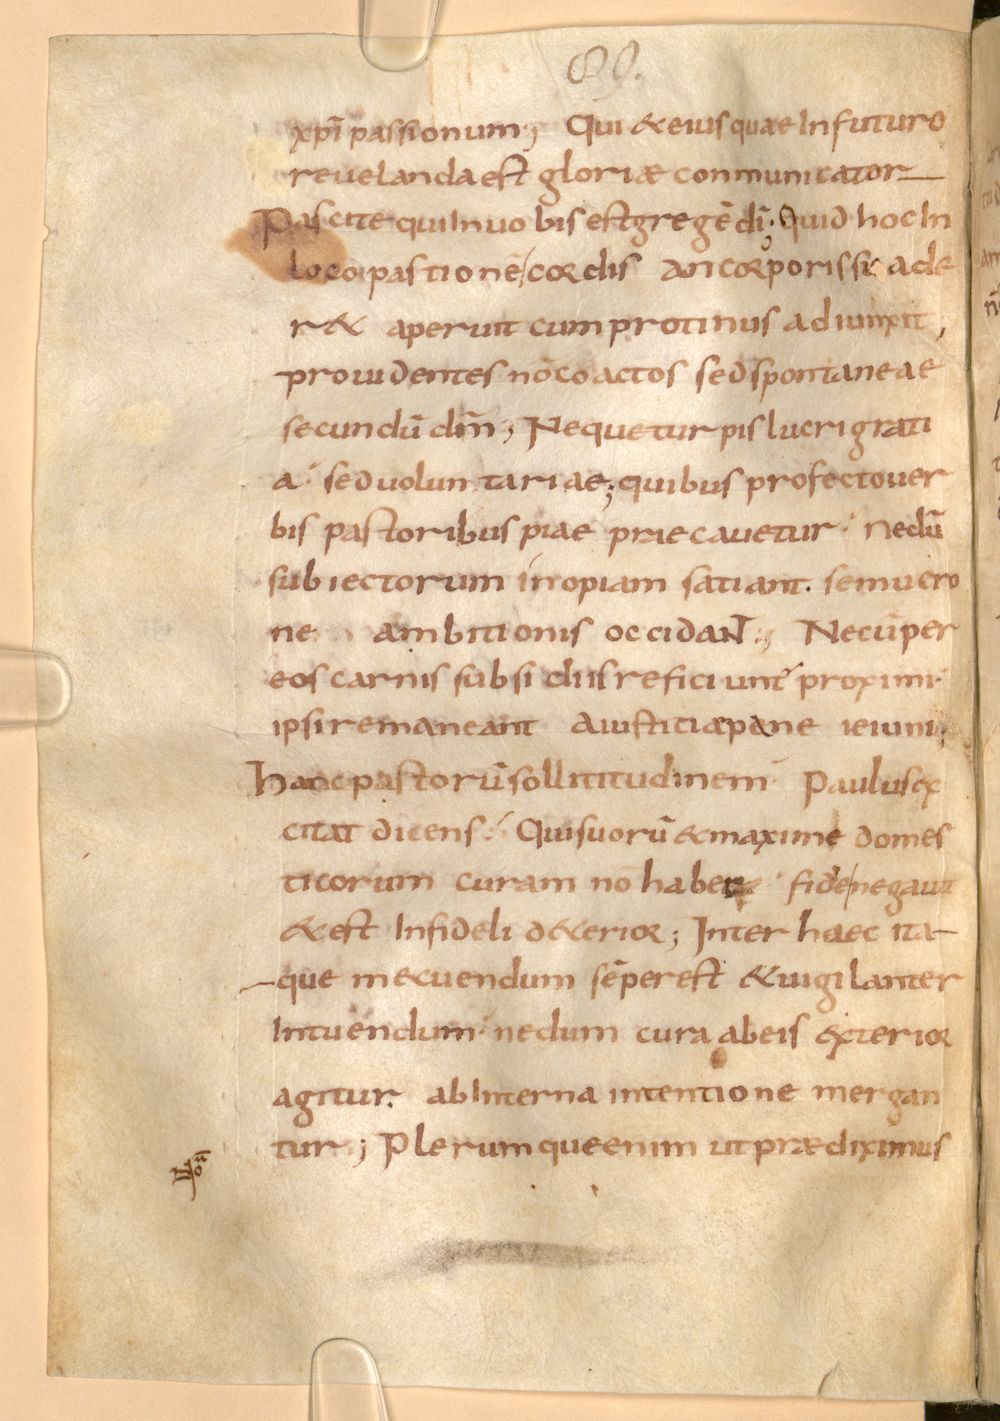 89.
xp̄i passionum; Qui & eius quae In futuro
reuelanda est gloriæ conmunicator
Pascite qui In uobis est gregē dī; Quid hoc In
loco pastionē cordis an corporis suade
r& aperuit cum protinus adiunxit,
prouidentes nō coactos sed spontaneae
secundū dm̄; Neque turpis lucri grati
a· sed uoluntariae; quibus profecto uer
bis pastoribus piae praecauetur· ne dū
subiectorum inopiam satiant. se mucro
ne ambitionis occidant; Ne cū per
eos carnis subsidiis reficiunt' proximi·
ipsi remaneant a iustitiæ pane ieiuni;
Hanc pastorū sollititudinem Paulus ex
citat dicens· Qui suorū & maxime domes
ticorum curam nō habet· fidē negauit
& est Infideli d&erior; Inter haec ita
que m&uendum sēper est & uigilanter
Intuendum· ne dum cura ab eis exterior
agitur. ab Interna intentione mergan
tur; Plerumque enim ut prædiximus